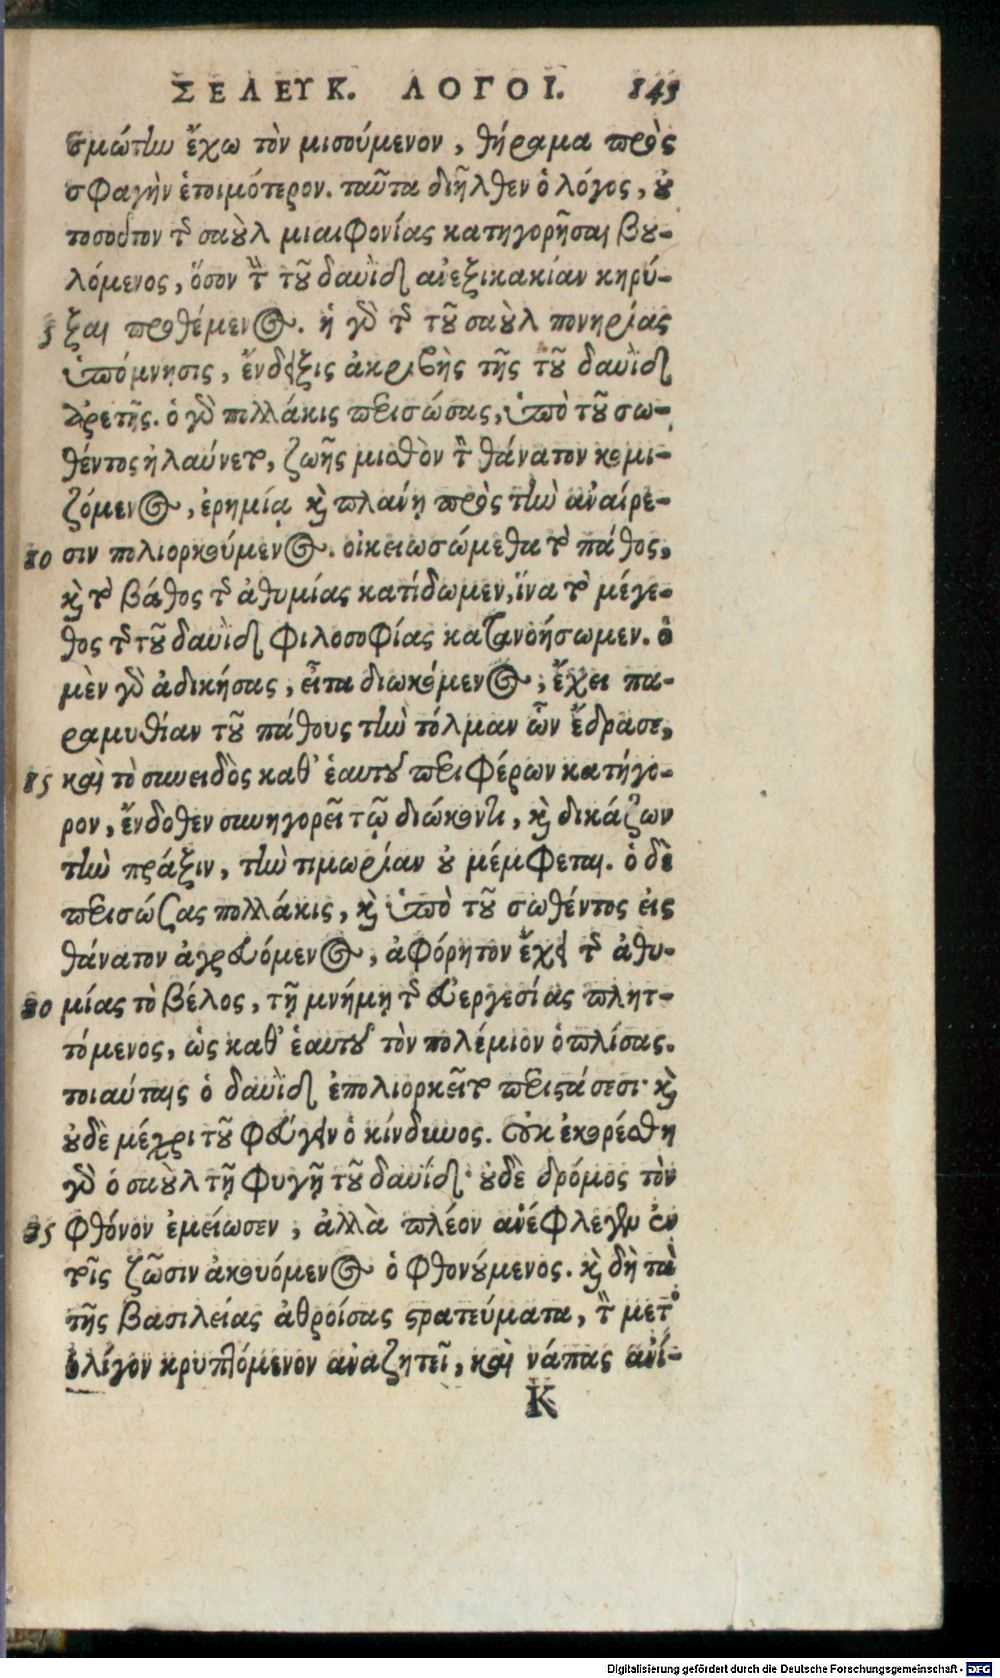 ΣΕΛΕΥΚ. ΛΟΓΟΙ. 145
σμώτην ἔχω τὸν μισούμενον, θήραμα πρὸς
σφαγὴν ἑτοιμότερον. ταῦτα διῆλθεν ὁ λόγος, οὐ
τοσοῦτον τῆς σαοὺλ μιαιφονίας κατηγορῆσαι βου-
λόμενος, ὅσον τὴν τοῦ δαυῒδ ἀνεξικακίαν κηρύ-
5 ξαι προθέμενος. ἡ γὰρ τῆς τοῦ σαοὺλ πονηρίας
ὑπόμνησις, ἔνδειξις ἀκριβὴς τῆς τοῦ δαυῒδ
ἀρετῆς. ὁ γὰρ πολλάκις περισώσας, ὑπὸ τοῦ σω-
θέντος ἠλαύνετο, ζωῆς μισθὸν τὸν θάνατον κομι-
ζόμενος, ἐρημίᾳ καὶ πλάνῃ πρὸς τὴν ἀναίρε-
10 σιν πολιορκούμενος. οἰκειωσώμεθα τὸ πάθος,
καὶ τὸ βάθος τῆς ἀθυμίας κατίδωμεν, ἵνα τὸ μέγε-
θος τῆς τοῦ δαυῒδ φιλοσοφίας κατανοήσωμεν. ὁ
μὲν γὰρ ἀδικήσας, εἶτα διωκόμενος, ἔχει πα-
ραμυθίαν τοῦ πάθους τὴν τόλμαν ὧν ἔδρασε,
15 καὶ τὸ συνειδὸς καθ' ἑαυτοῦ περιφέρων κατήγο-
ρον, ἔνδοθεν συνηγορεῖ τῷ διώκοντι, καὶ δικάζων
τὴν πρᾶξιν, τὴν τιμωρίαν οὐ μέμφεται. ὁ δὲ
περισώσας πολλάκις, καὶ ὑπὸ τοῦ σωθέντος εἰς
θάνατον ἀγρευόμενος, ἀφόρητον ἔχει τῆς ἀθυ-
20 μίας τὸ βέλος, τῇ μνήμῃ τῆς εὐεργεσίας πλητ-
τόμενος, ὡς καθ' ἑαυτοῦ τὸν πολέμιον ὁπλίσας.
τοιαύταις ὁ δαυῒδ ἐπολιορκεῖτο περιστάσεσι· καὶ
οὐδὲ μέχρι τοῦ φεύγειν ὁ κίνδυνος. οὐκ ἐκορέσθη
γὰρ ὁ σαοὺλ τῇ φυγῇ τοῦ δαυίδ· οὐδὲ δρόμος τὸν
25 φθόνον ἐμείωσεν, ἀλλὰ πλέον ἀνέφλεγεν ἐν
τοῖς ζῶσιν ἀκουόμενος ὁ φθονούμενος. καὶ δὴ τὰ
τῆς βασιλείας ἀθροίσας στρατεύματα, τὸν μετ'
ὀλίγον κρυπτόμενον ἀναζητεῖ, καὶ νάπας ἀνί-
K
Digitalisierung gefördert durch die Deutsche Forschungsgemeinschaft - DFG